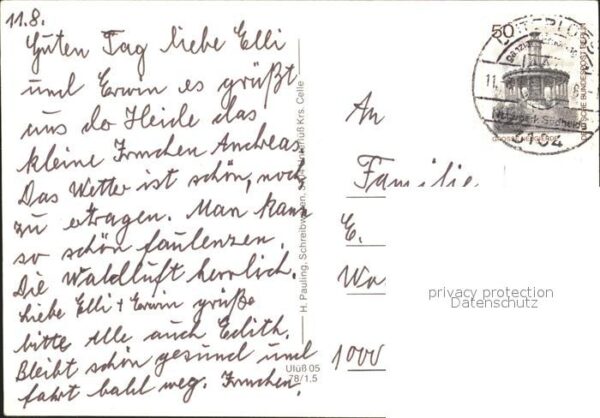 11.8.
Guten Tag liebe Elli
und Erwin es grüßt
uns do Heide das
kleine Irmchen Andreas.
Das Wetter ist schön, noch
zu ertragen. Man kann
so schön faulenzen.
Die Waldluft herrlich.
Liebe Elli + Erwin grüße
bitte Alle auch Edith.
Bleibt schön gesund und
fahrt bald weg. Irmchen.
H. Pauling, Schreibwaren, Krs. Celle
Ulüß 05
78/1.5
50
DEUTSCHE BUNDESPOST BERLIN
3104
An
Familie
E.
Wa
1000
privacy protection
Datenschutz